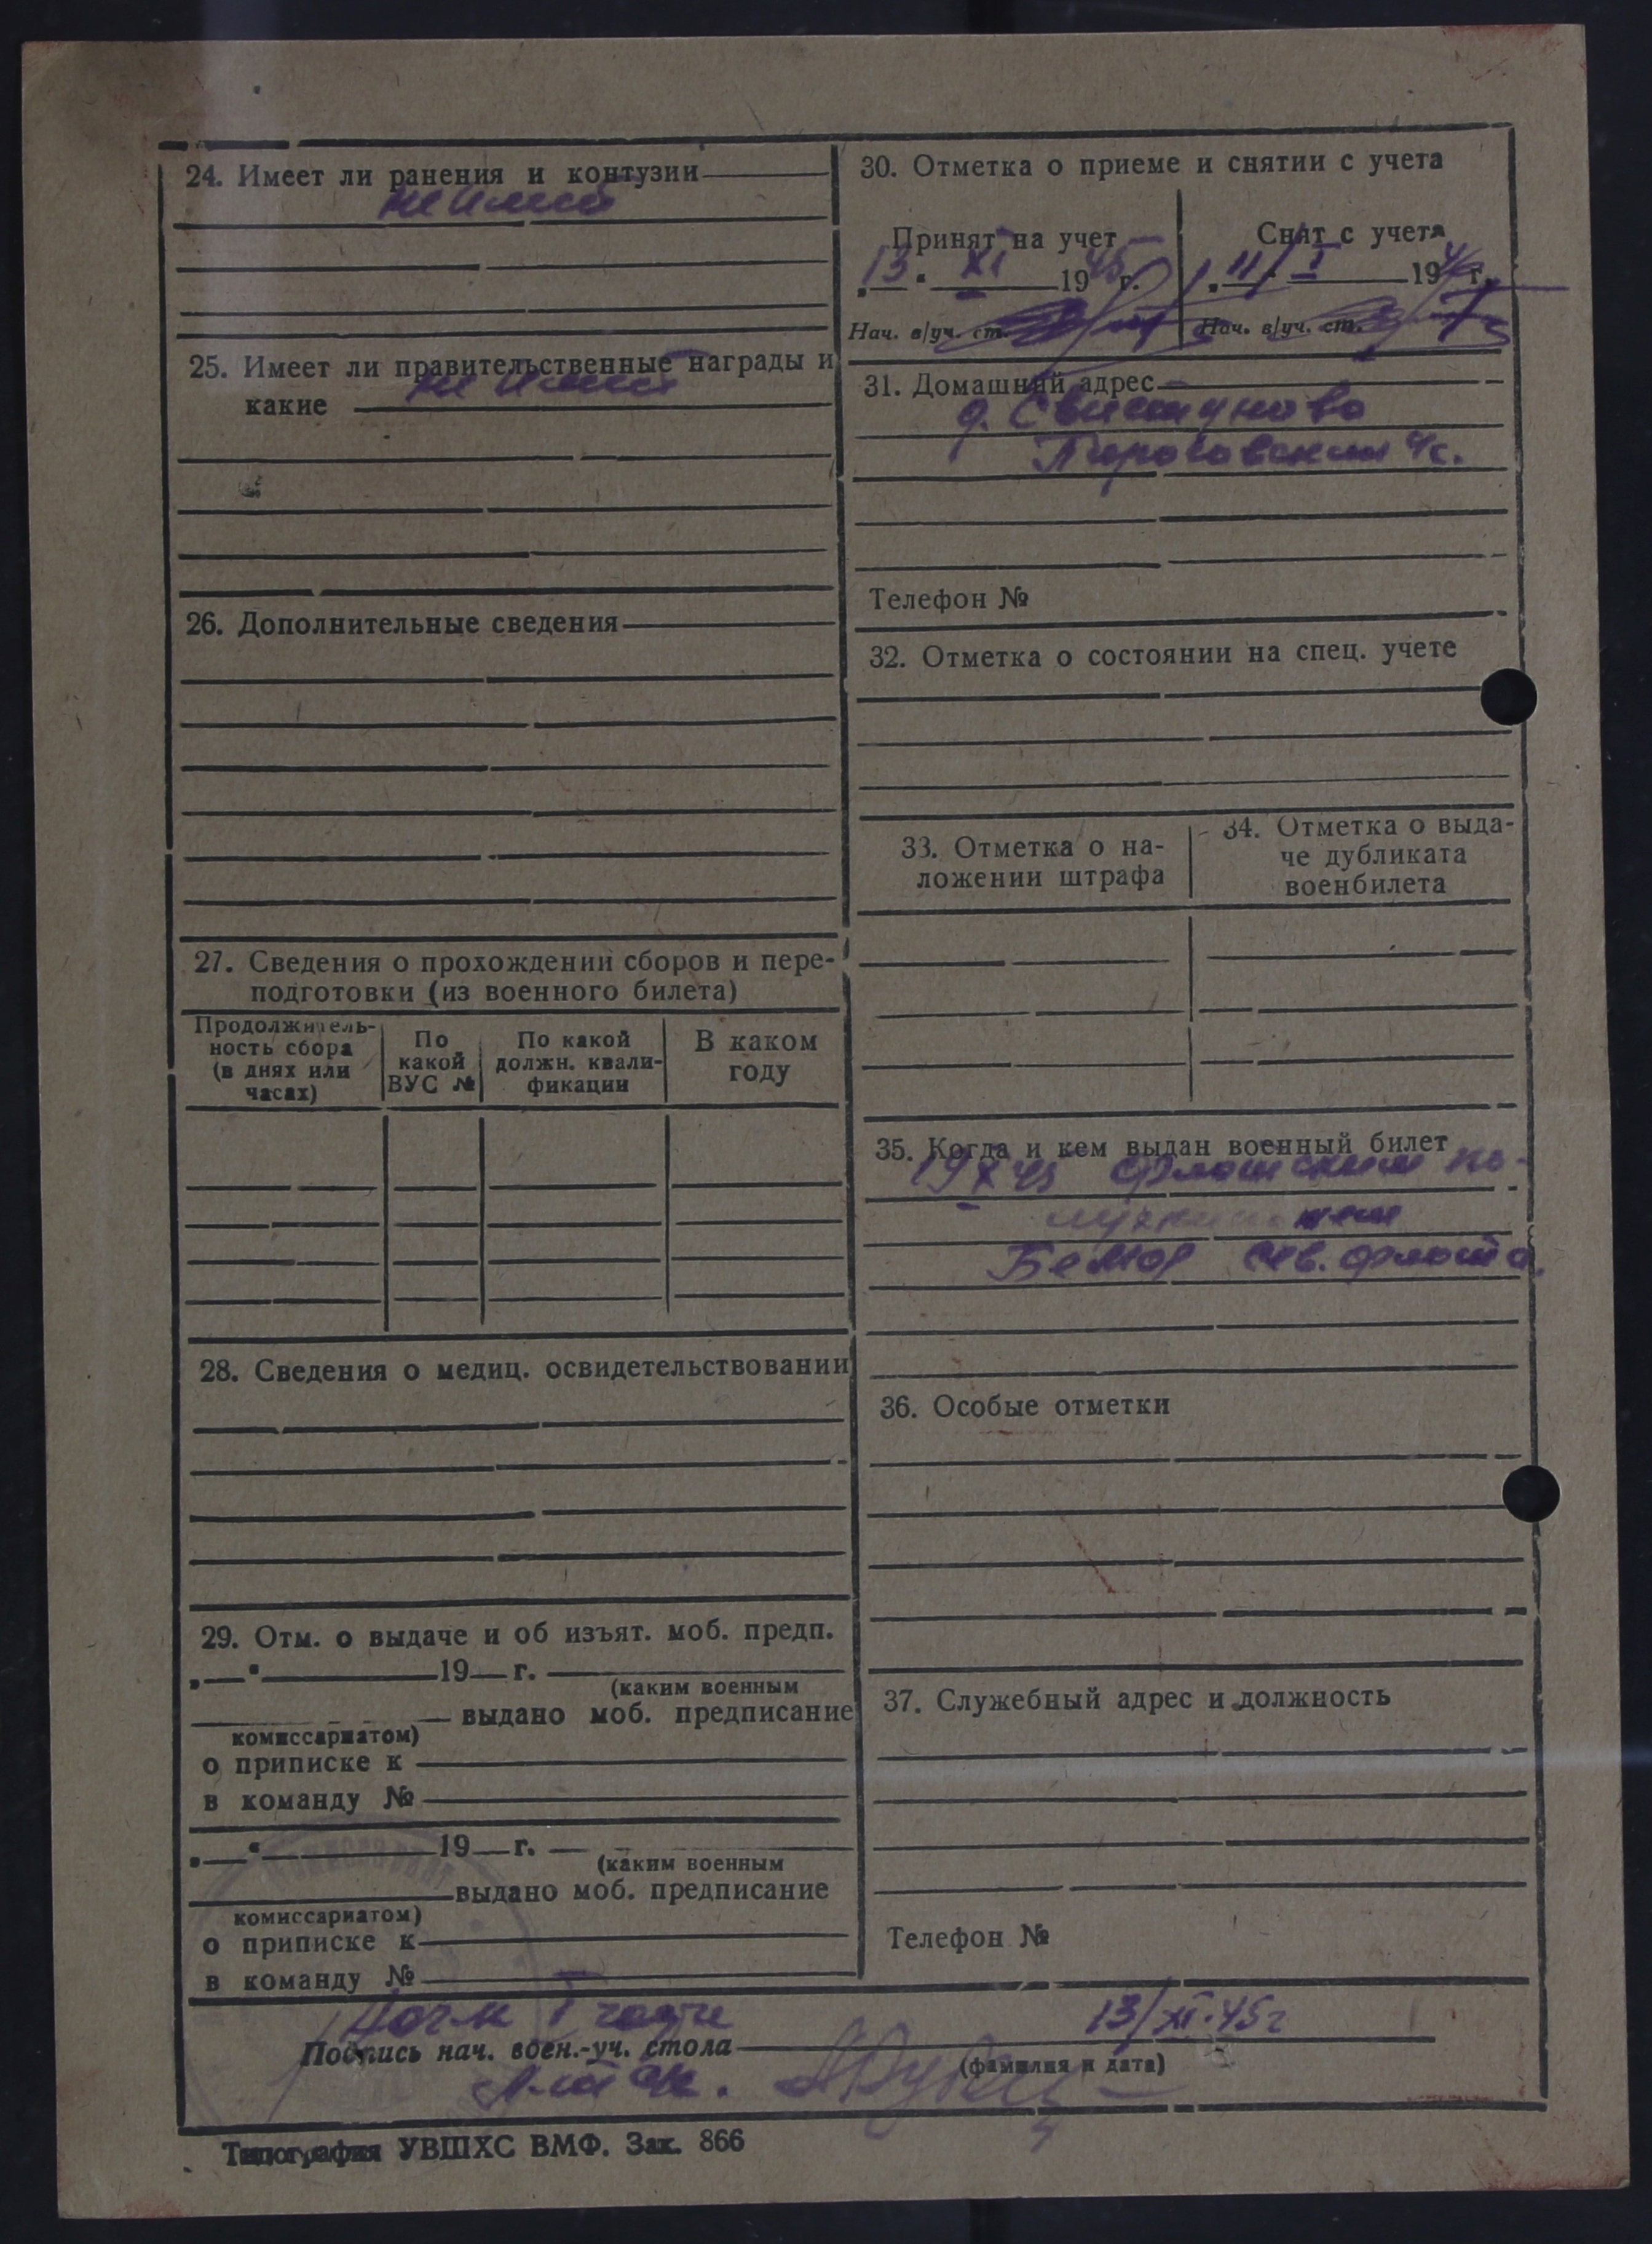 24. Имеет ли ранения и контузии
не имеет
25. Имеет ли правительственные награды и
не имеет
какие
26. Дополнительные сведения
27. Сведения о прохождении сборов и пере-
подготовки (из военного билета)
Продолжитель-
ность сбора
(в днях или
часах)
По
какой
ВУС №
По какой
должн. квали-
фикации
В каком
году
28. Сведения о медиц. освидетельствовании
29. Отм. о выдаче и об изъят. моб. предп.
„ “ 19 г.
(каким военным
выдано моб. предписание
комиссариатом)
о приписке к
в команду №
„ “ 19 г.
(каким военным
выдано моб. предписание
комиссариатом)
о приписке к
в команду №
30. Отметка о приеме и снятии с учета
Принят на учет
13 XI 1945 г.
Нач. в/уч. ст.
Снят с учета
11 I 1946 г.
Нач. в/уч. ст.
31. Домашний адрес
д. Свистуново
с.
Телефон №
32. Отметка о состоянии на спец. учете
33. Отметка о на-
ложении штрафа
34. Отметка о выда-
че дубликата
военбилета
35. Когда и кем выдан военный билет
19 X 45 Флотским по-
БелМор Сев. флота.
36. Особые отметки
37. Служебный адрес и должность
Телефон №
I части 13/XI.45г
Подпись нач. воен.-уч. стола
(фамилия и дата)
Типография УВШХС ВМФ. Зак. 866